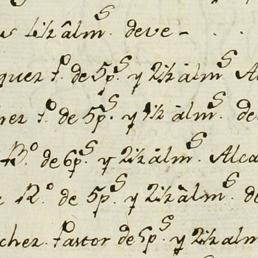 1/2 âlmS deve -
quez fo. de 5pS y 2 1/2 âlmS Al
rez fo. de 5pS y 1 1/2 âlmS de
Bo. de 6pS y 2 1/2 âlmS Alca
Ro. de 5pS y 2 1/2 âlmS de
chez Pastor de 6pS y 2 1/2 alm